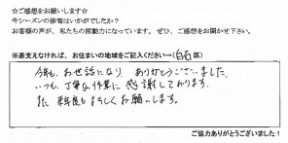 ☆ご感想をお願いします☆
今シーズンの排雪はいかがでしたか?
お客様の声が、私たちの原動力になっています。ぜひ、ご感想をお聞かせ下さい。
※差支えなければ、お住まいの地域をご記入ください→(白石区)
今年も、お世話になり ありがとうございました。
いつも、丁寧な作業に 感謝しております。
また 来年もよろしくお願いします。
ご協力ありがとうございました!